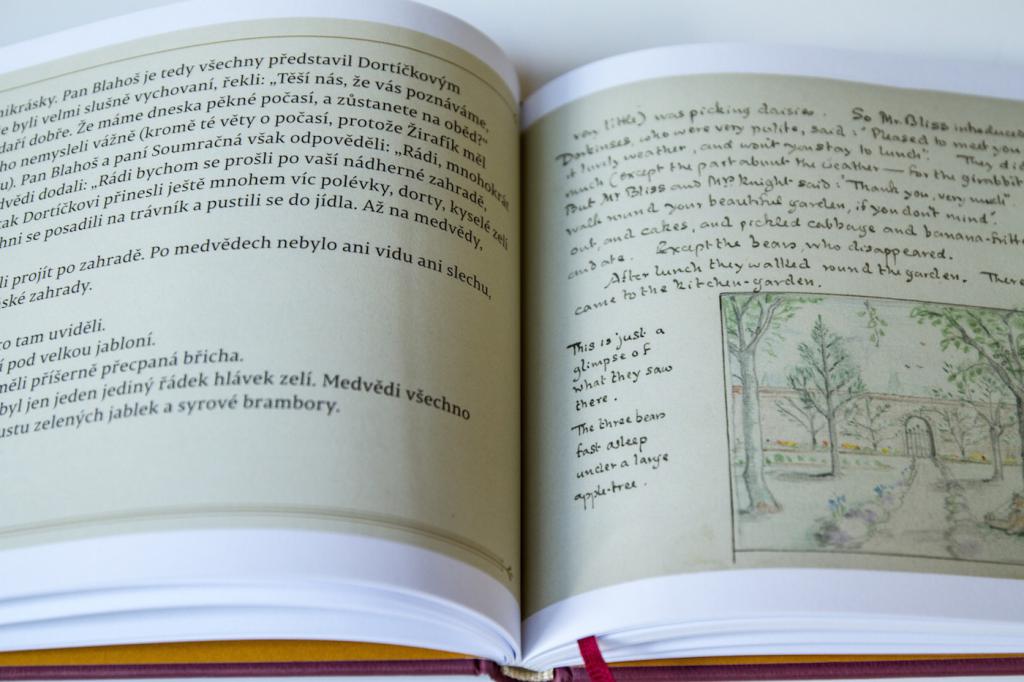 mikrásky. Pan Blahoš je tedy všechny představil Dortíčkovým
e byli velmi slušně vychovaní, řekli: „Těší nás, že vás poznáváme,
daří dobře. Že máme dneska pěkné počasí, a zůstanete na oběd?“
ho nemysleli vážně (kromě té věty o počasí, protože Žirafík měl
u). Pan Blahoš a paní Soumračná však odpověděli: „Rádi, mnohokrát
dvědi dodali: „Rádi bychom se prošli po vaší nádherné zahradě,
tak Dortíčkovi přinesli ještě mnohem víc polévky, dorty, kyselé zelí
hni se posadili na trávník a pustili se do jídla. Až na medvědy,
li projít po zahradě. Po medvědech nebylo ani vidu ani slechu,
ské zahrady.
to tam uviděli.
í pod velkou jabloní.
měli příšerně přecpaná břicha.
byl jen jeden jediný řádek hlávek zelí. Medvědi všechno
ustu zelených jablek a syrové brambory.
very little) was picking daisies. So Mr. Bliss introduced
Dorkinses, who were very polite, said: "Pleased to meet you
it lovely weather, and won't you stay to lunch". They did
much (except the part about the weather — for the girabbit
But Mr Bliss and Mrs Knight said: "Thank you, very much"
walk round your beautiful garden, if you don't mind".
out, and cakes, and pickled cabbage and banana-fritt
and ate. Except the bears, who disappeared.
After lunch they walked round the garden. There
came to the kitchen-garden.
This is just a
glimpse of
what they saw
there.
The three bears
fast asleep
under a large
apple-tree.